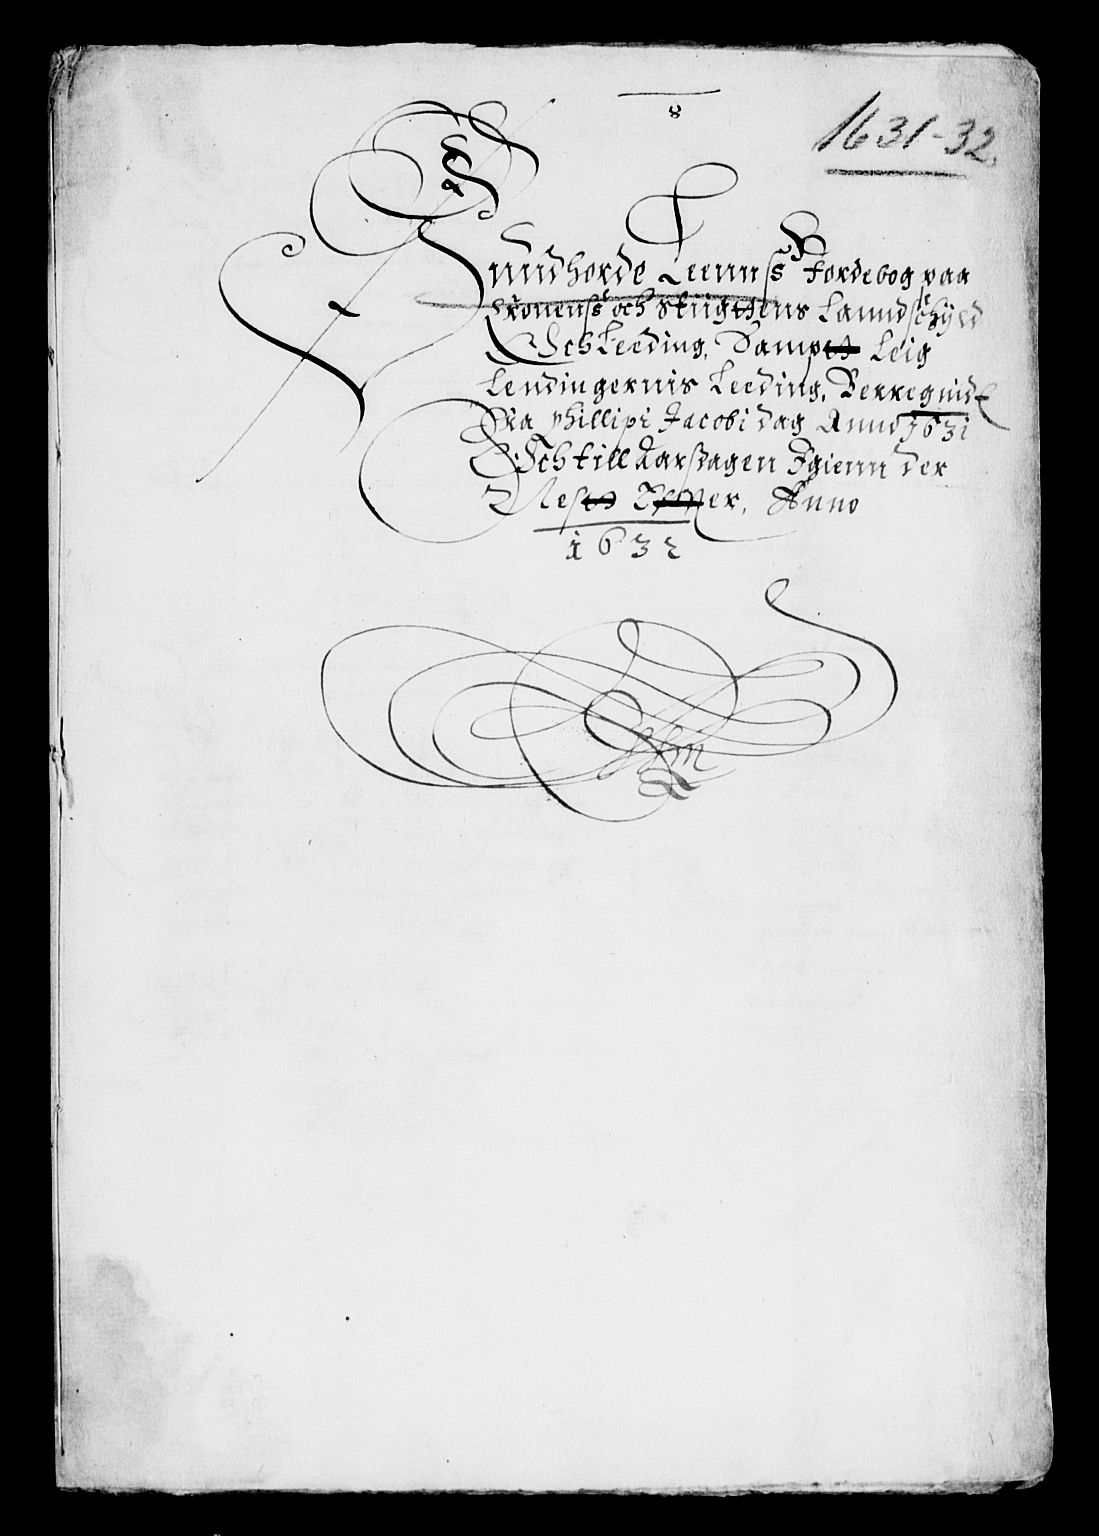 8
1631-32.
Sundhorde Leennss Jordebog paa
Kronenss och Stiigttens Lanndschyld
Och Leeding, Sampt Leig
Lendingernis Leeding, Berregnidt
Fra Phillipi Jacobi dag Anno 1631
Och till Aarssdagen Igienn der
Nest Effter, Anno
1632